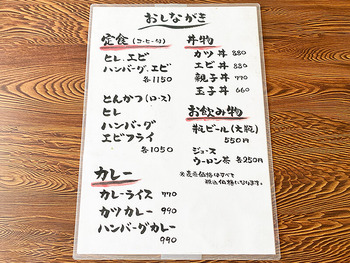 おしながき
定食(コーヒー付)
ヒレ、エビ
ハンバーグ、エビ
各1150
とんかつ(ロース)
ヒレ
ハンバーグ
エビフライ
各1050
カレー
カレーライス 770
カツカレー 990
ハンバーグカレー
990
丼物
カツ丼 880
エビ丼 880
親子丼 770
玉子丼 660
お飲み物
瓶ビール(大瓶)
550円
ジュース
ウーロン茶 各250円
※表示価格はすべて
税込価格になります。